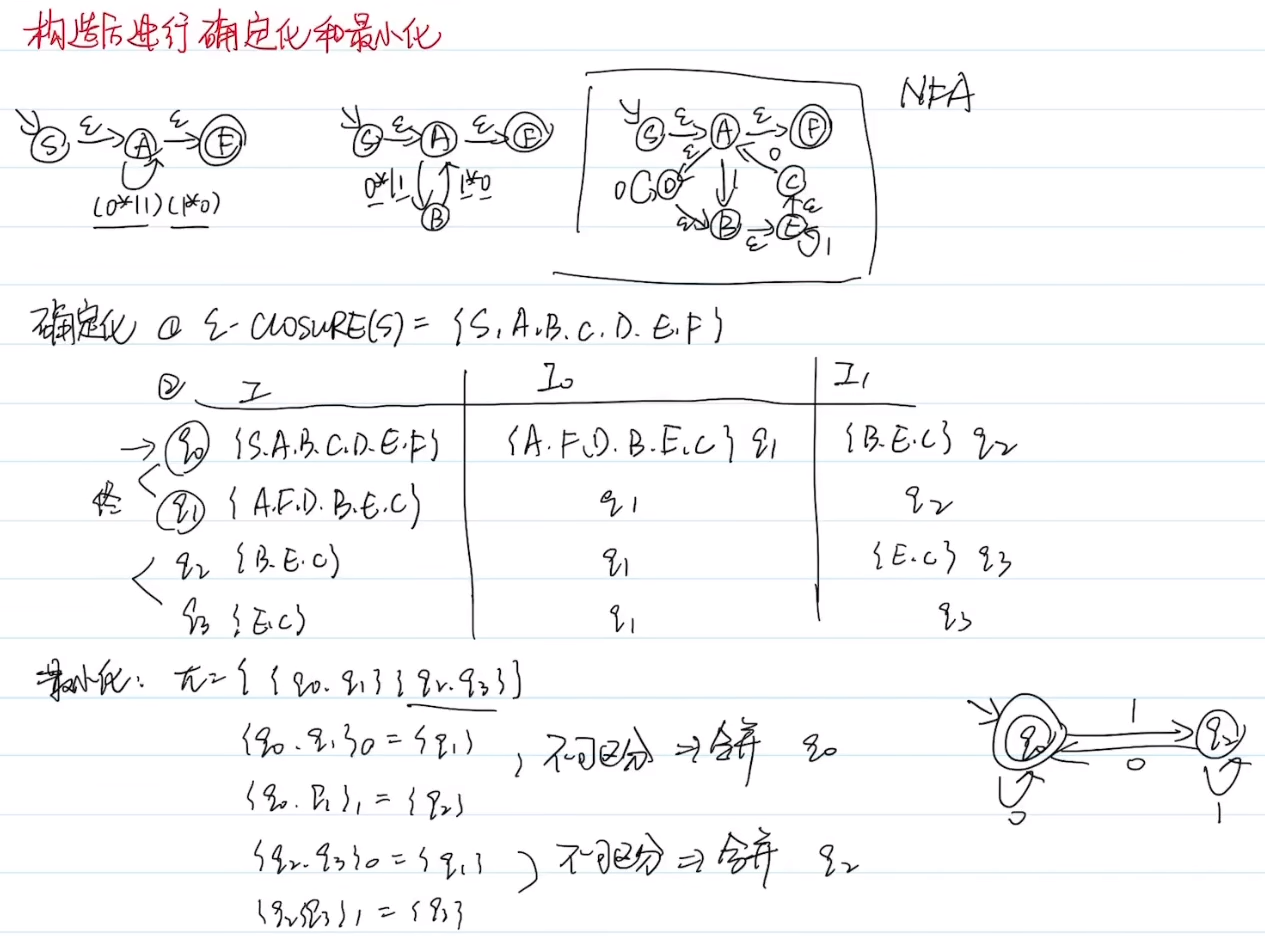 构造后进行确定化和最小化
S ε A ε F
(0*|1)(1*0)
S ε A ε F
0*|1 1*0
B
S ε A ε F
ε 0
0 D 1 C
ε B ε E ε
1
NFA
确定化 ① ε-CLOSURE(S) = {S.A.B.C.D.E.F}
② I I₀ I₁
→ q0 {S.A.B.C.D.E.F} {A.F.D.B.E.C} q1 {B.E.C} q2
终 q1 {A.F.D.B.E.C} q1 q2
q2 {B.E.C} q1 {E.C} q3
q3 {E.C} q1 q3
最小化: π={ {q0.q1}{q2.q3}}
{q0.q1}0 = {q1}, 不可区分 ⇒ 合并 q0
{q0.q1}1 = {q2}
{q2.q3}0 = {q1}) 不可区分 ⇒ 合并 q2
{q2q3}1 = {q3}
q0 1 q2
0
0 1